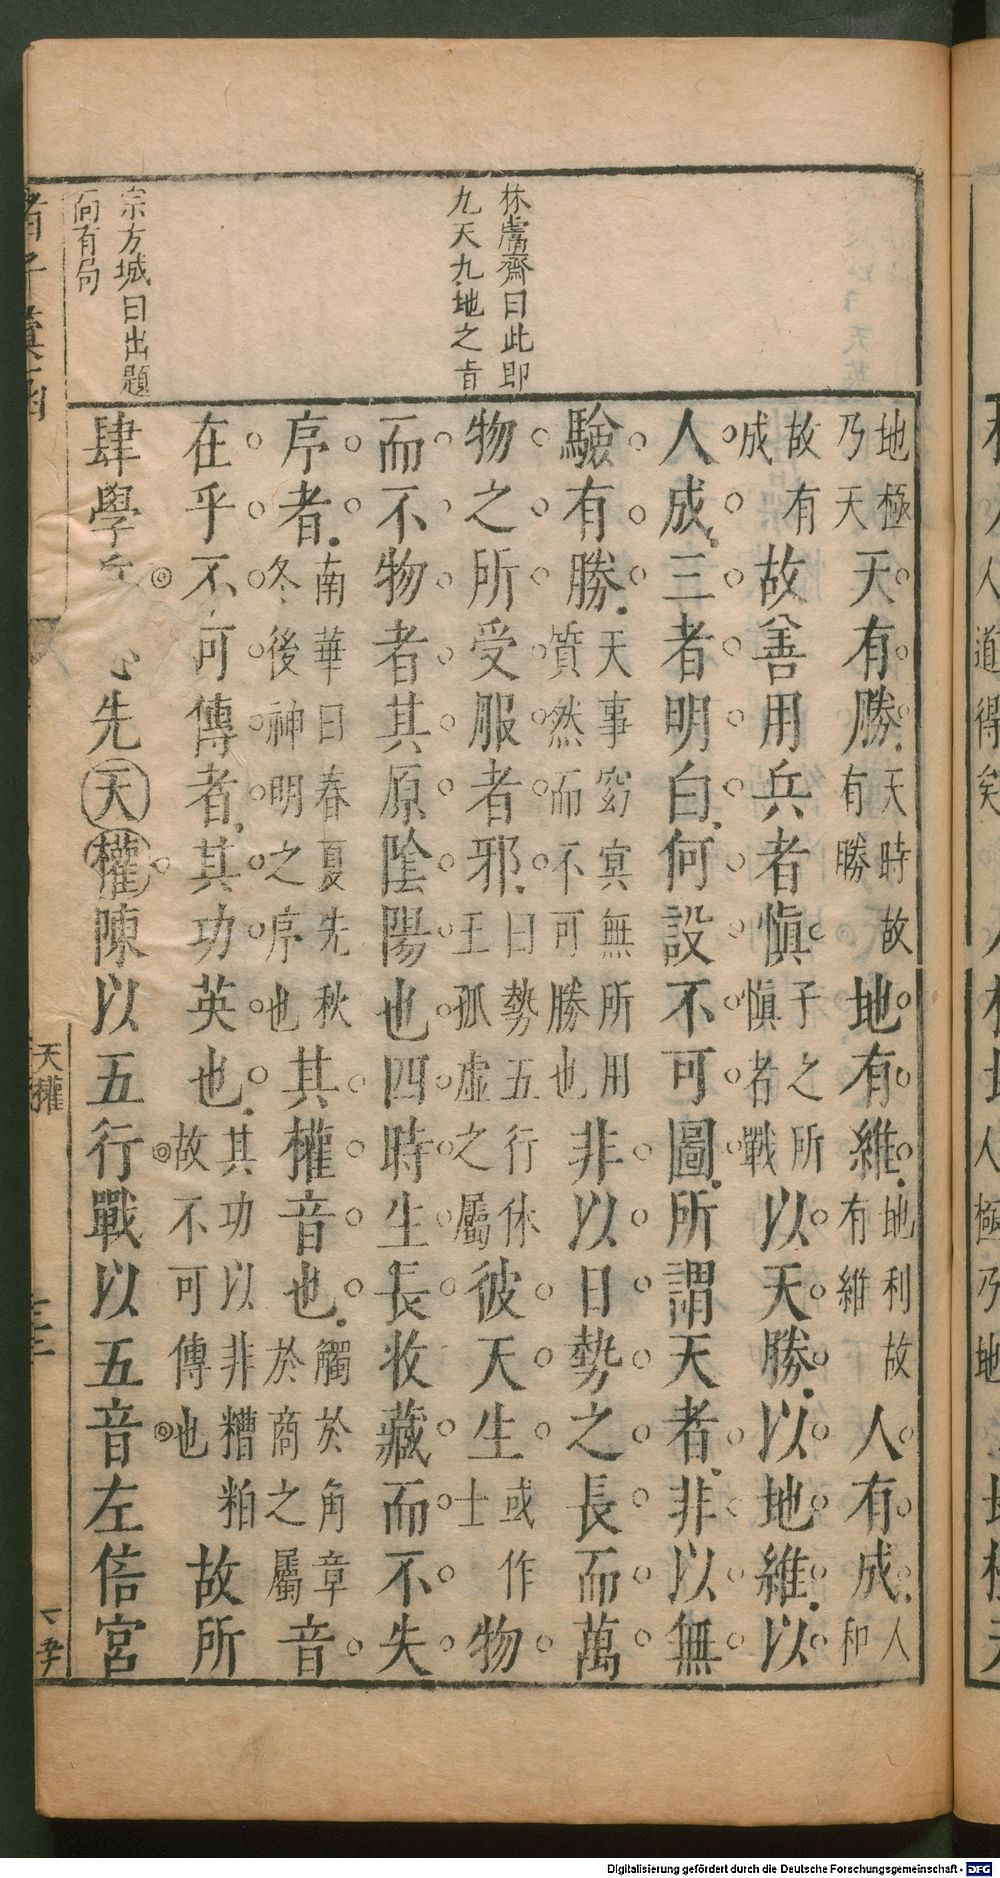 林鬳齋曰此即
九天九地之㫖
宗方城曰出題
向有句
地極乃天天有勝天時故有勝地有維地利故有維人有成人和
故有成故善用兵者慎子之所慎者戰以天勝以地維以
人成三者明白何設不可圖所謂天者非以無
驗有勝天事窈冥無所用質然而不可勝也非以日勢之長而萬
物之所受服者邪曰勢五行休王孤虛之屬彼天生或作士物
而不物者其原陰陽也四時生長收藏而不失
序者南華曰春夏先秋冬後神明之序也其權音也觸於角章於商之屬音
在乎不可傳者其功英也其功以非糟粕故不可傳也故所
肆學先天權陳以五行戰以五音左倍宮
天權
Digitalisierung gefördert durch die Deutsche Forschungsgemeinschaft - DFG